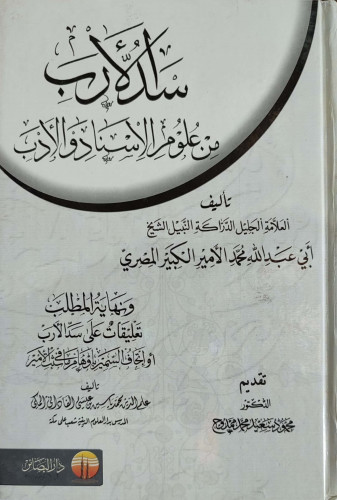 سد الأرب
من علوم الإسناد والأدب
تأليف
العلامة الجليل الدراكة النبيل الشيخ
أبي عبد الله محمد الأمير الكبير المصري
ونهاية المطلب
تعليقات على سد الأرب
أو إتحاف السمير بأوهام ما في ثبت الأمير
تأليف
علم الدين محمد ياسين بن عيسى الفاداني المكي
المدرس بدار العلوم الدينية شعب علي مكة
تقديم
الدكتور
محمود سعيد محمد ممدوح
دار البصائر